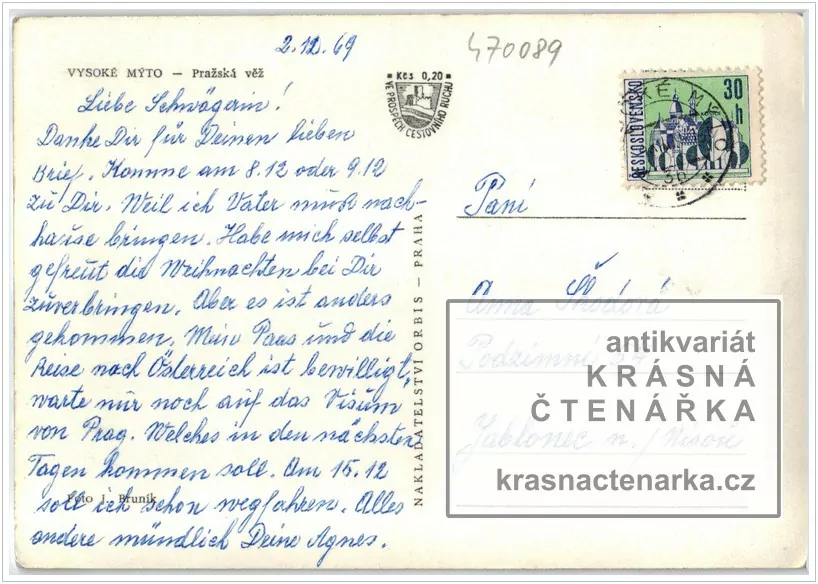 2.12.69
470089
VYSOKÉ MÝTO — Pražská věž
Liebe Schwägerin!
Danke Dir für Deinen lieben
Brief. Komme am 8.12 oder 9.12
zu Dir. Weil ich Vater muss nach-
hause bringen. Habe mich selbst
gefreut die Weihnachten bei Dir
zuverbringen. Aber es ist anders
gekommen. Mein Paas und die
Reise nach Österreich ist bewilligt,
warte nur noch auf das Visum
von Prag. Welches in den nächsten
Tagen kommen soll. Am 15.12
soll ich schon wegfahren. Alles
andere mündlich Deine Agnes.
Foto J. Bruník
Kčs 0,20
VE PROSPĚCH CESTOVNÍHO RUCHU
NAKLADATELSTVÍ ORBIS — PRAHA
ČESKOSLOVENSKO
30 h
Paní
Anna Škodová
Podzimní
Jablonec n./Nisou
antikvariát
KRÁSNÁ
ČTENÁŘKA
krasnactenarka.cz